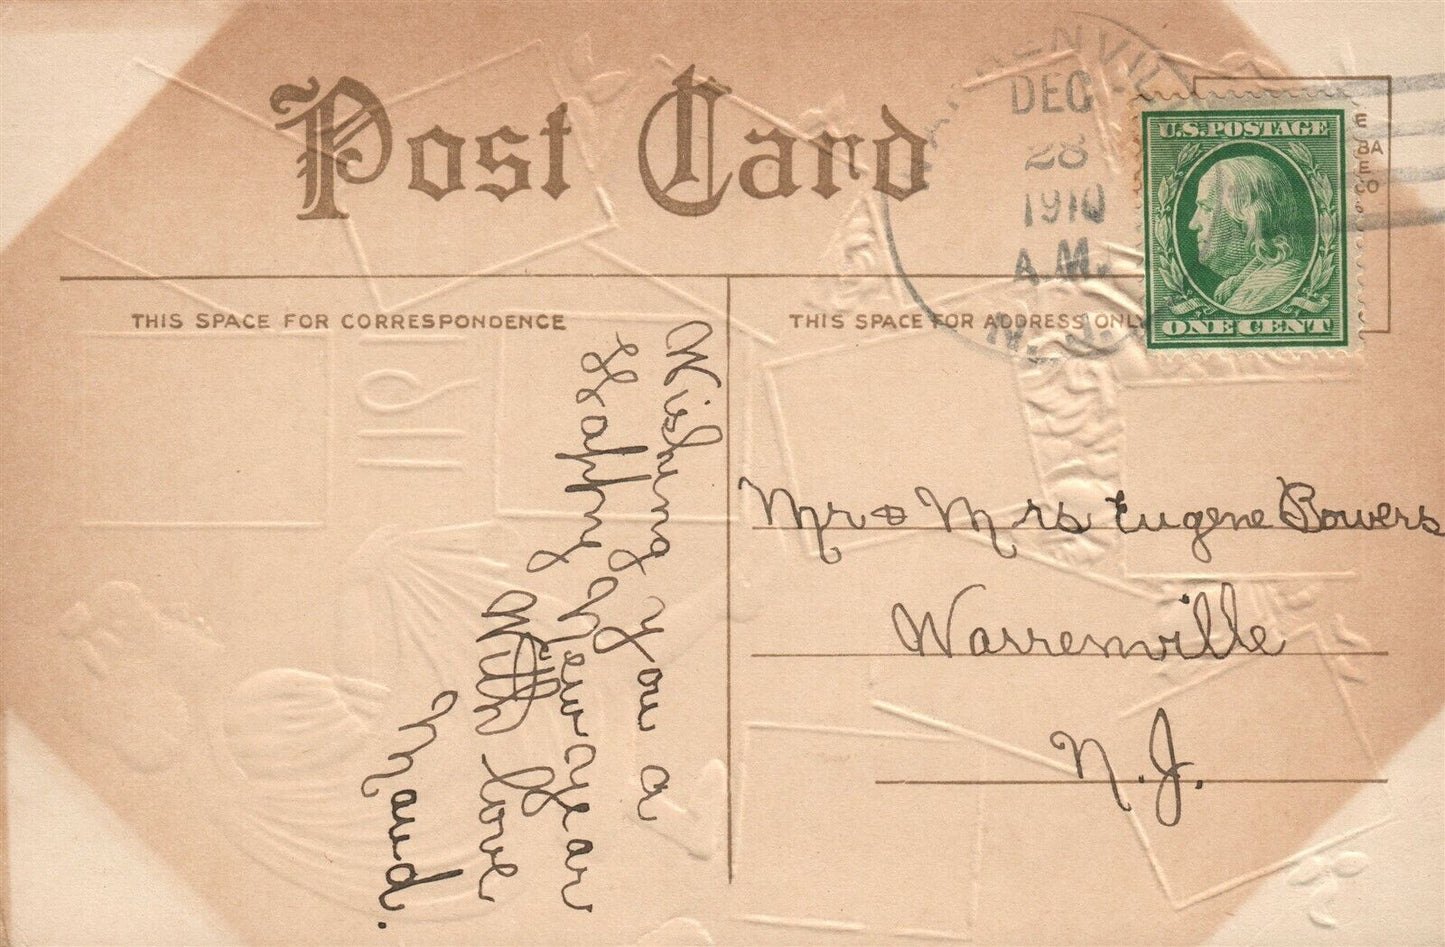 Post Card
WARRENVILLE
DEC
28
1910
A.M.
N.J.
U.S. POSTAGE
ONE CENT
E
BA
E
CO
THIS SPACE FOR CORRESPONDENCE
THIS SPACE FOR ADDRESS ONLY
Wishing you a
Happy New Year
With love
Maud.
Mr & Mrs Eugene Bowers
Warrenville
N.J.